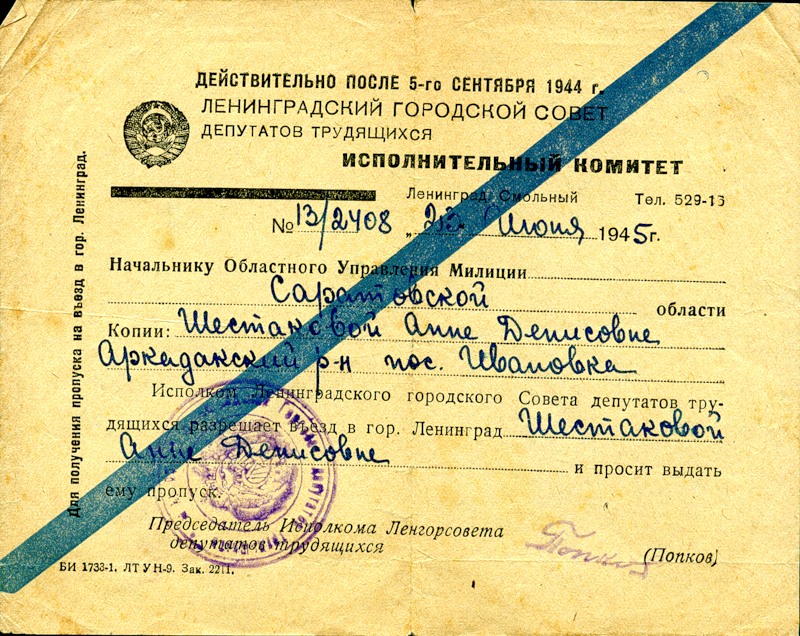 ДЕЙСТВИТЕЛЬНО ПОСЛЕ 5-го СЕНТЯБРЯ 1944 г.
ЛЕНИНГРАДСКИЙ ГОРОДСКОЙ СОВЕТ
ДЕПУТАТОВ ТРУДЯЩИХСЯ
ИСПОЛНИТЕЛЬНЫЙ КОМИТЕТ
Ленинград, Смольный Тел. 529-13
№ 13/2408 „23 Июня 1945 г.
Начальнику Областного Управления Милиции
Саратовской области
Копии: Шестаковой Анне Денисовне
Аркадакский р-н пос. Ивановка
Исполком Ленинградского городского Совета депутатов тру-
дящихся разрешает въезд в гор. Ленинград Шестаковой
Анне Денисовне и просит выдать
ему пропуск.
Председатель Исполкома Ленгорсовета
депутатов трудящихся
Попков (Попков)
БИ 1733-1. ЛТ УН-9. Зак. 2211.
Для получения пропуска на въезд в гор. Ленинград.